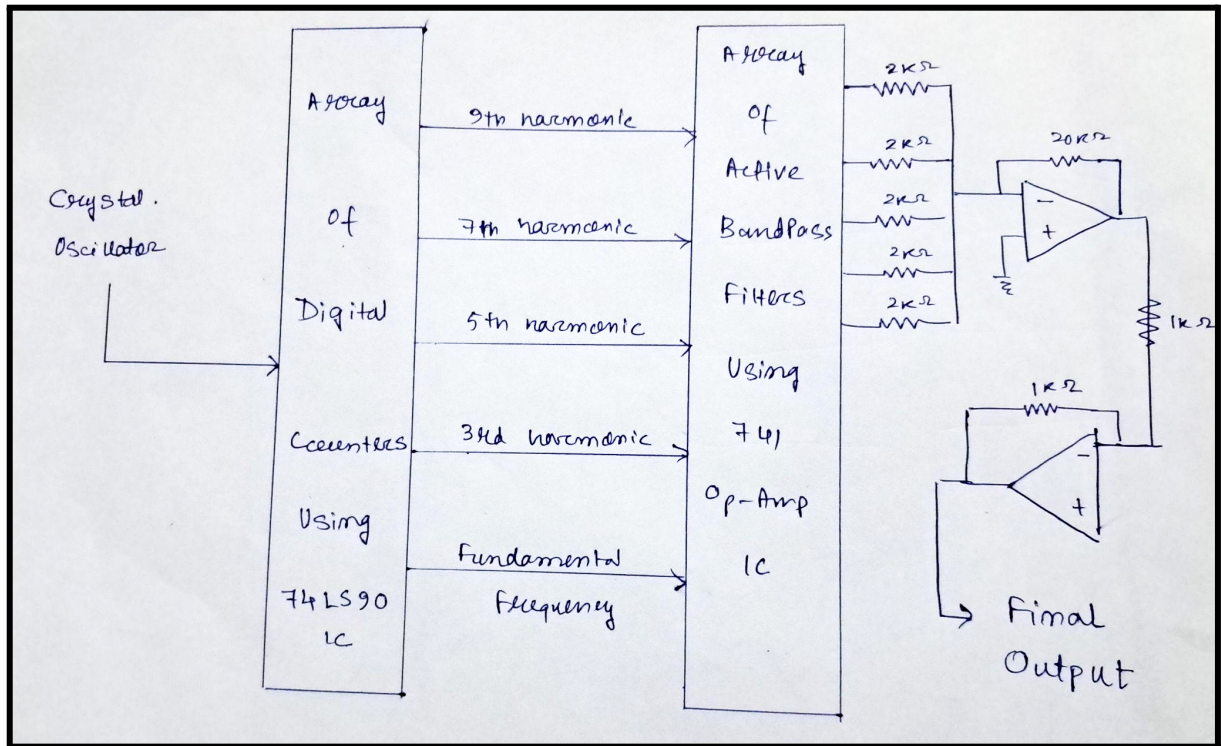 Crystal.
Oscillator
Array
Of
Digital
Counters
Using
74LS90
IC
9th harmonic
7th harmonic
5th harmonic
3rd harmonic
Fundamental
Frequency
Array
Of
Active
BandPass
Filters
Using
741
Op-Amp
IC
2KΩ
2KΩ
2KΩ
2KΩ
2KΩ
20KΩ
-
+
1KΩ
1KΩ
-
+
Final
Output